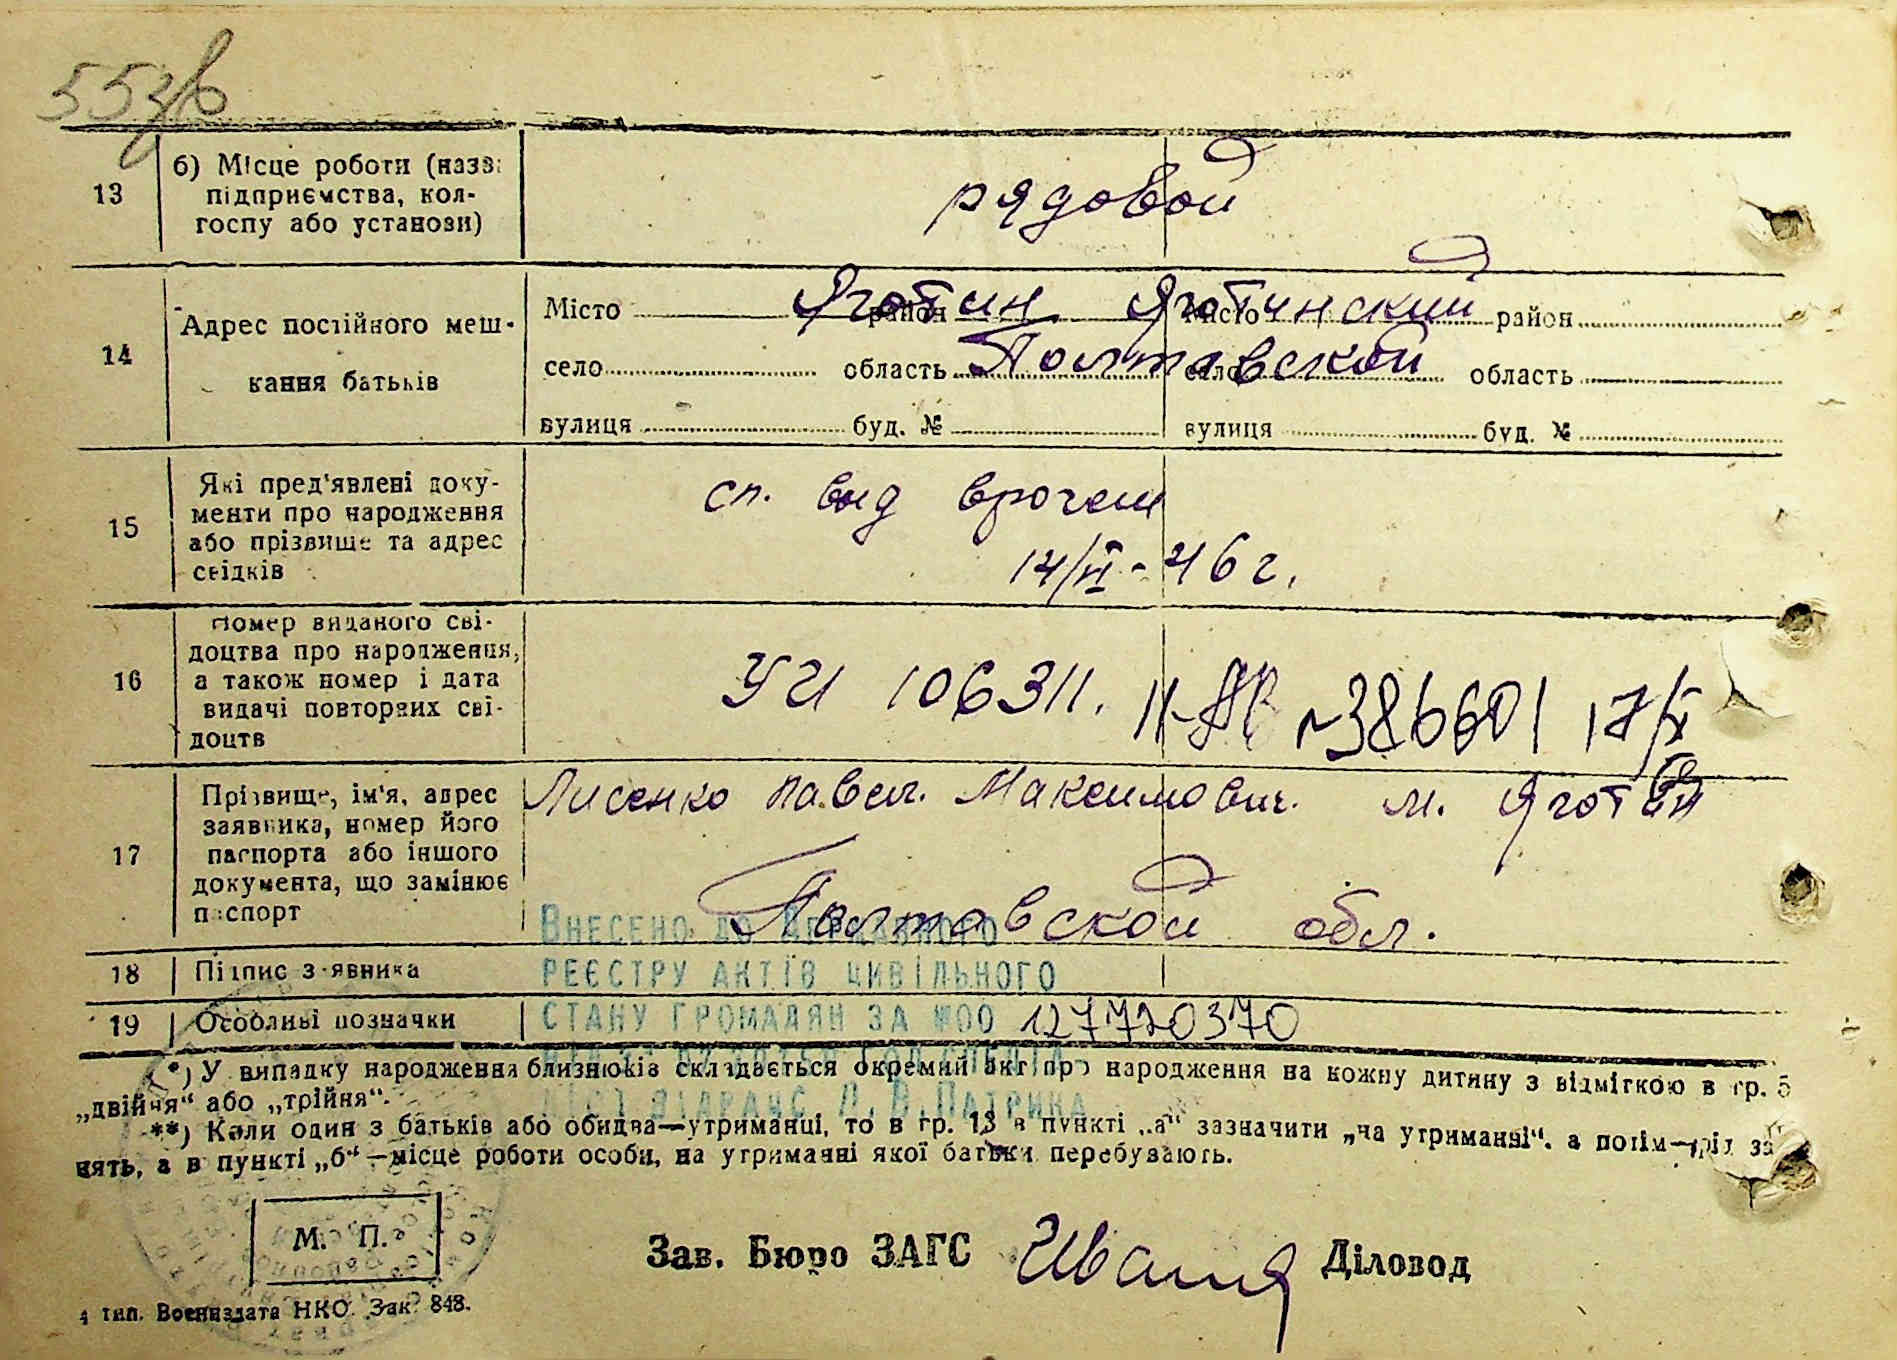 13
б) Місце роботи (назва
підприємства, кол-
госпу або установи)
рядовой
14
Адрес постійного меш-
кання батьків
Місто Яготин район Місто Яготинский район
село область Полтавской село область
вулиця буд. № вулиця буд. №
15
Які пред'явлені доку-
менти про народження
або прізвище та адрес
свідків
сп. выд врачем
14/VI-46 г.
16
Номер виданого сві-
доцтва про народження,
а також номер і дата
видачі повторних сві-
доцтв
УЧ 106311. №386601 17/X
17
Прізвище, ім'я, адрес
заявника, номер його
паспорта або іншого
документа, що замінює
паспорт
Лисенко Павел. Максимович. м. Яготин
Полтавской обл.
ВНЕСЕНО ДО ДЕРЖАВНОГО
18 Підпис заявника
РЕЄСТРУ АКТІВ ЦИВІЛЬНОГО
19 Особливі позначки
СТАНУ ГРОМАДЯН ЗА №00 127720370
*) У випадку народження близнюків складається окремий акт про народження на кожну дитину з відміткою в гр. 5
„двійня“ або „трійня“.
ДРАЦС Л.В.ПАТРИКА
**) Коли один з батьків або обидва—утриманці, то в гр. 13 в пункті „а“ зазначити „на утриманні“, а потім—рід за
нять, а в пункті „б“—місце роботи особи, на утриманні якої батьки перебувають.
М. П.
Зав. Бюро ЗАГС Діловод
4 тип. Воениздата НКО. Зак. 848.